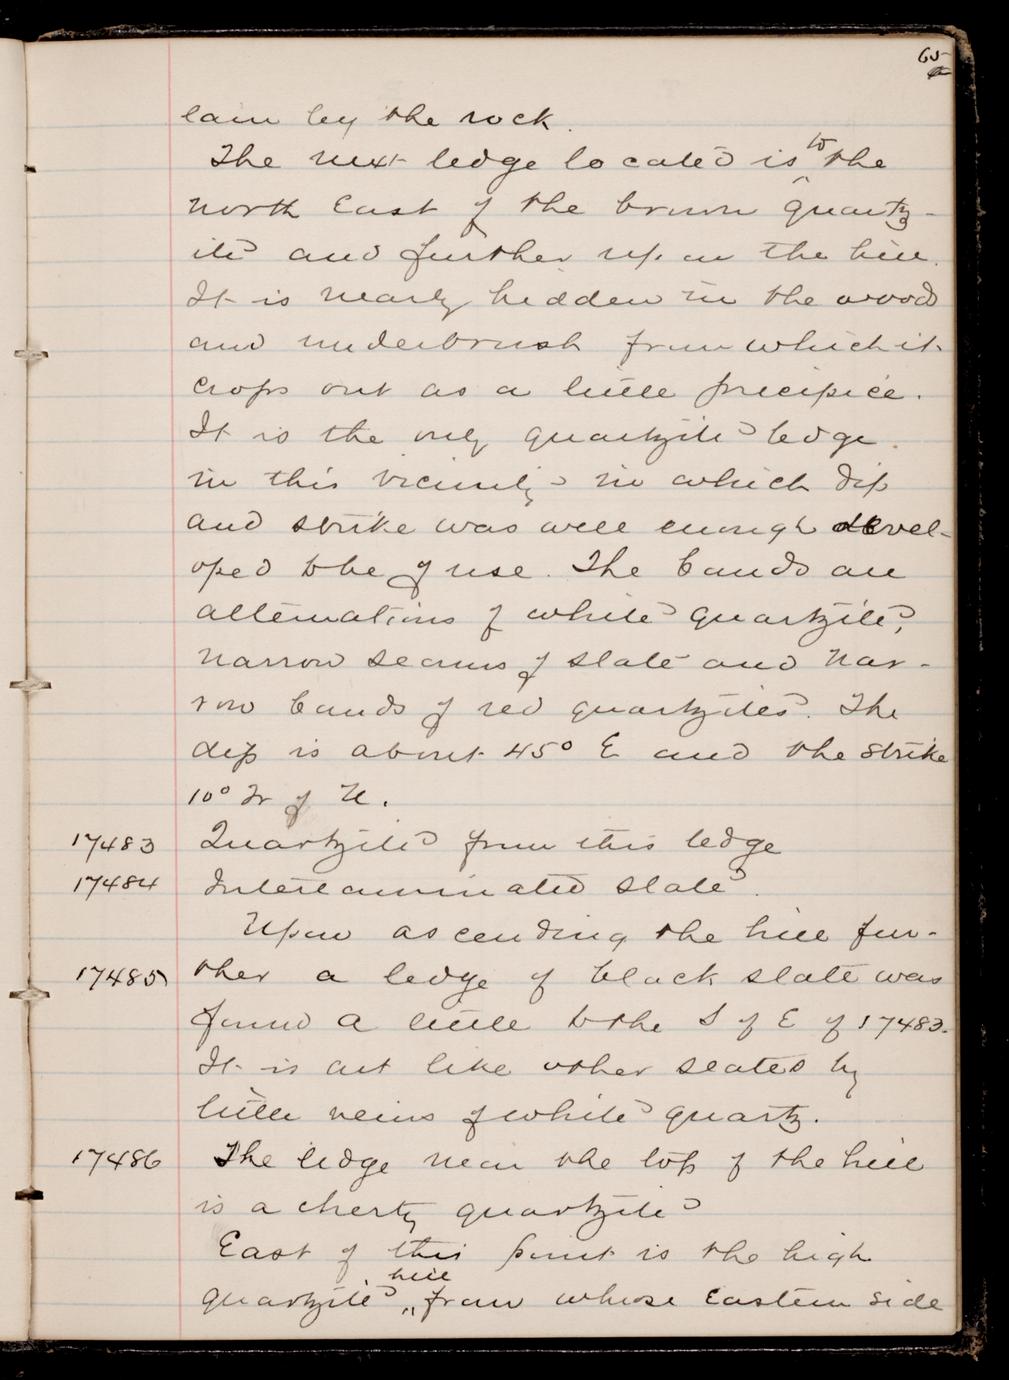 65
lain by the rock.
The next ledge located is ^to the
north East of the brown quartz-
ite and further up on the hill.
It is nearly hidden in the woods
and underbrush from which it
crops out as a little precipice.
It is the only quartzite ledge
in this vicinity in which dip
and strike was well enough devel-
oped to be of use. The bands are
alternations of white quartzite,
narrow seams of slate and nar-
row bands of red quartzites. The
dip is about 45° E and the strike
10° W of N.
17483 Quartzite from this ledge
17484 Interlaminated slate.
Upon ascending the hill fur-
17485 ther a ledge of black slate was
found a little to the S of E of 17483.
It is cut like other slates by
little veins of white quartz.
17486 The ledge near the top of the hill
is a cherty quartzite
East of this point is the high
quartzite ^hill, from whose Eastern side